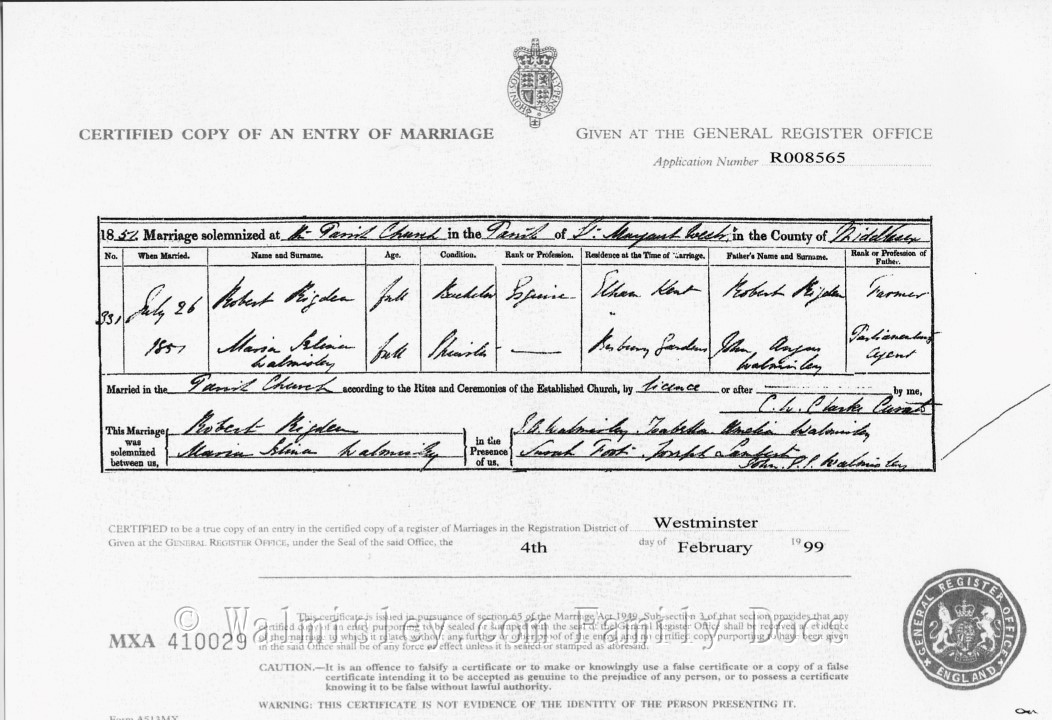 CERTIFIED COPY OF AN ENTRY OF MARRIAGE
GIVEN AT THE GENERAL REGISTER OFFICE
Application Number R008565
Marriage solemnized at the Parish Church in the Parish of St. Margaret in the County of Middlesex
No. When Married. Name and Surname. Age. Condition. Rank or Profession. Residence at the Time of Marriage. Father's Name and Surname. Rank or Profession of Father.
331 July 26 Robert Rigden full Bachelor Esquire Elham Kent Robert Rigden Farmer
Maria Walmisley full Spinster — Gardens John Angus Walmisley Parliamentary Agent
Married in the Parish Church according to the Rites and Ceremonies of the Established Church, by licence or after by me,
C. W. Clarke Curate
This Marriage was solemnized between us,
Robert Rigden
Maria Walmisley
in the Presence of us.
Walmisley Isabella Amelia Walmisley
Sarah Joseph Lambert
John Walmisley
CERTIFIED to be a true copy of an entry in the certified copy of a register of Marriages in the Registration District of Westminster
Given at the GENERAL REGISTER OFFICE, under the Seal of the said Office, the 4th day of February 1999
MXA 410029
This certificate is issued in pursuance of section 65 of the Marriage Act 1949. Sub-section 3 of that section provides that any
in the said Office shall be of any force or effect unless it is sealed or stamped as aforesaid.
© Walmisley.com Family Docs
CAUTION.—It is an offence to falsify a certificate or to make or knowingly use a false certificate or a copy of a false
certificate intending it to be accepted as genuine to the prejudice of any person, or to possess a certificate
knowing it to be false without lawful authority.
WARNING: THIS CERTIFICATE IS NOT EVIDENCE OF THE IDENTITY OF THE PERSON PRESENTING IT.
GENERAL REGISTER OFFICE ENGLAND